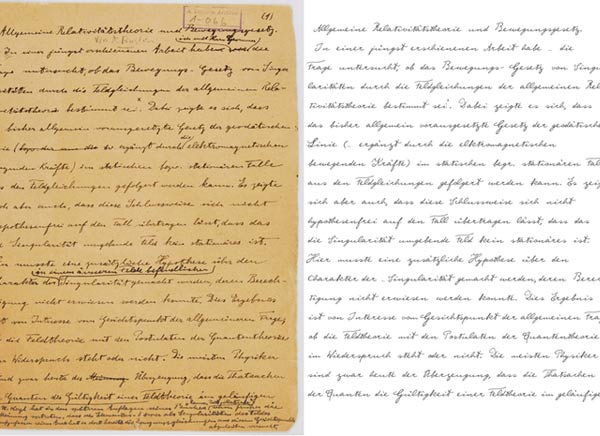 1-066
(1)
Allgemeine Relativitätstheorie und Bewegungsgesetz.
In einer jüngst erschienenen Arbeit die
untersucht, ob das Bewegungs-Gesetz von Singu
durch die Feldgleichungen der allgemeinen Rela-
bestimmt sei. Dabei zeigte es sich, dass
bisher allgemein vorausgesetzte Gesetz der geodätischen
ergänzt durch die elektromagnetischen
Kräfte) im statischen bezw. stationären Falle
den Feldgleichungen gefolgert werden kann. Es zeigte
aber auch, dass diese Schlussweise sich nicht
auf den Fall übertragen lässt, dass das
Singularität umgebende Feld kein stationäres ist.
musste eine zusätzliche Hypothese über den
in einem äusseren Felde befindlichen
der Singularität gemacht werden, deren Berech-
nicht erwiesen werden konnte. Dies Ergebnis
von Interesse vom Gesichtspunkt der allgemeinen Frage,
die Feldtheorie mit den Postulaten der Quantentheorie
Widerspruch steht oder nicht. Die meisten Physiker
zwar heute der Überzeugung, dass die Thatsachen
Quanten die Gültigkeit einer Feldtheorie im geläufigen
Allgemeine Relativitätstheorie und Bewegungsgesetz.
In einer jüngst erschienenen Arbeit habe - die
Frage untersucht, ob das Bewegungs- Gesetz von Singu
laritäten durch die Feldgleichungen der allgemeinen Rela
Relativitätstheorie bestimmt sei. Dabei zeigte es sich, dass
das bisher allgemein vorausgesetzte Gesetz der geodätische
Linie (.. ergänzt durch die elektromagnetischen
bewegenden Kräfte) im statischen bezr. stationären Fall
aus den Feldgleichungen gefolgert werden kann. Es zeig
sich aber auch, dass diese Schlussweise sich nicht
hypothesenfrei auf den Fall übertragen lässt, dass das
die Singularität umgebende Feld kein stationäres ist.
Hier musste eine zusätzliche Hypothese über den
Charakter der - Singularität gemacht werden, deren Berec
tigung nicht erwiesen werden konnte. Dies Ergebnis
ist von Interesse vom Gesichtspunkt der allgemeinen Frag
ob die Feldtheorie mit den Postulaten der Quantentheorie
im Wiederspruch steht oder nicht. Die meisten Physiker
sind zwar heute der Überzeugung, dass die Thatsachen
der Quanten die Gültigkeit einer Feldtheorie im geläufige